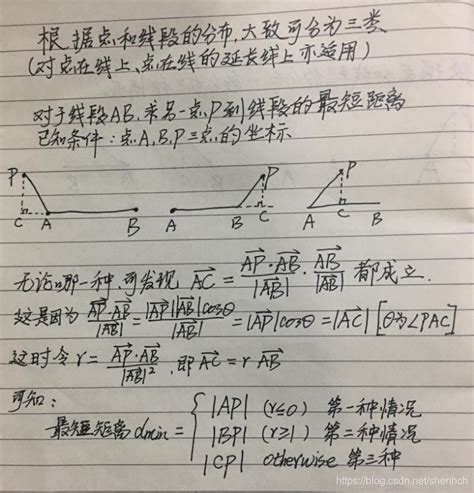 根据点和线段的分布,大致可分为三类
(对点在线上、点在线的延长线上亦适用)
对于线段AB,求另一点P到线段的最短距离
已知条件:点A,B,P三点的坐标
P C A B A B C P P A C B
无论哪一种,可发现 \overrightarrow{AC} = \frac{\overrightarrow{AP}·\overrightarrow{AB}}{|\overrightarrow{AB}|}·\frac{\overrightarrow{AB}}{|\overrightarrow{AB}|} 都成立.
这是因为 \frac{\overrightarrow{AP}·\overrightarrow{AB}}{|\overrightarrow{AB}|} = \frac{|\overrightarrow{AP}||\overrightarrow{AB}|cosθ}{|\overrightarrow{AB}|} = |\overrightarrow{AP}|cosθ = |\overrightarrow{AC}| [θ为∠PAC]
这时令 r = \frac{\overrightarrow{AP}·\overrightarrow{AB}}{|\overrightarrow{AB}|^2}, 即 \overrightarrow{AC} = r\overrightarrow{AB}
可知:
|AP| (r≤0) 第一种情况
最短距离 dmin = { |BP| (r≥1) 第二种情况
|CP| otherwise 第三种
https://blog.csdn.net/shenhch